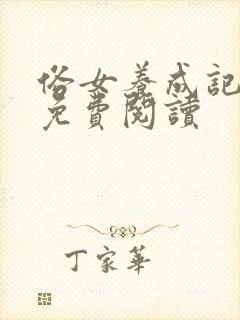 俗女養成記
免費閱讀
丁家華